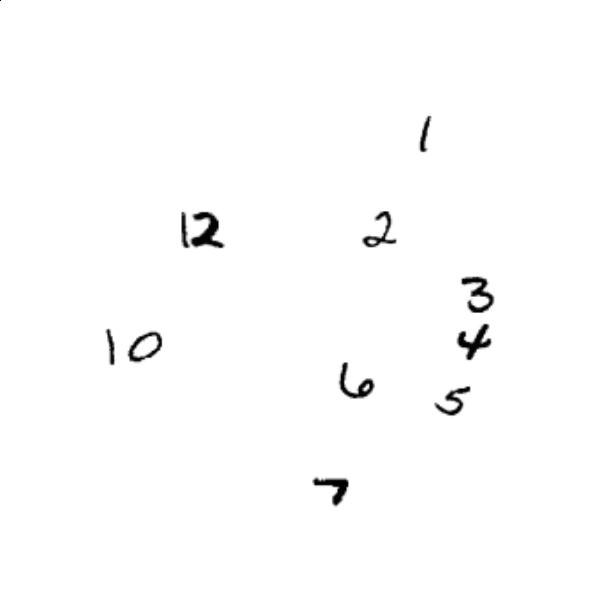 1
12 2
3
10 4
6 5
7